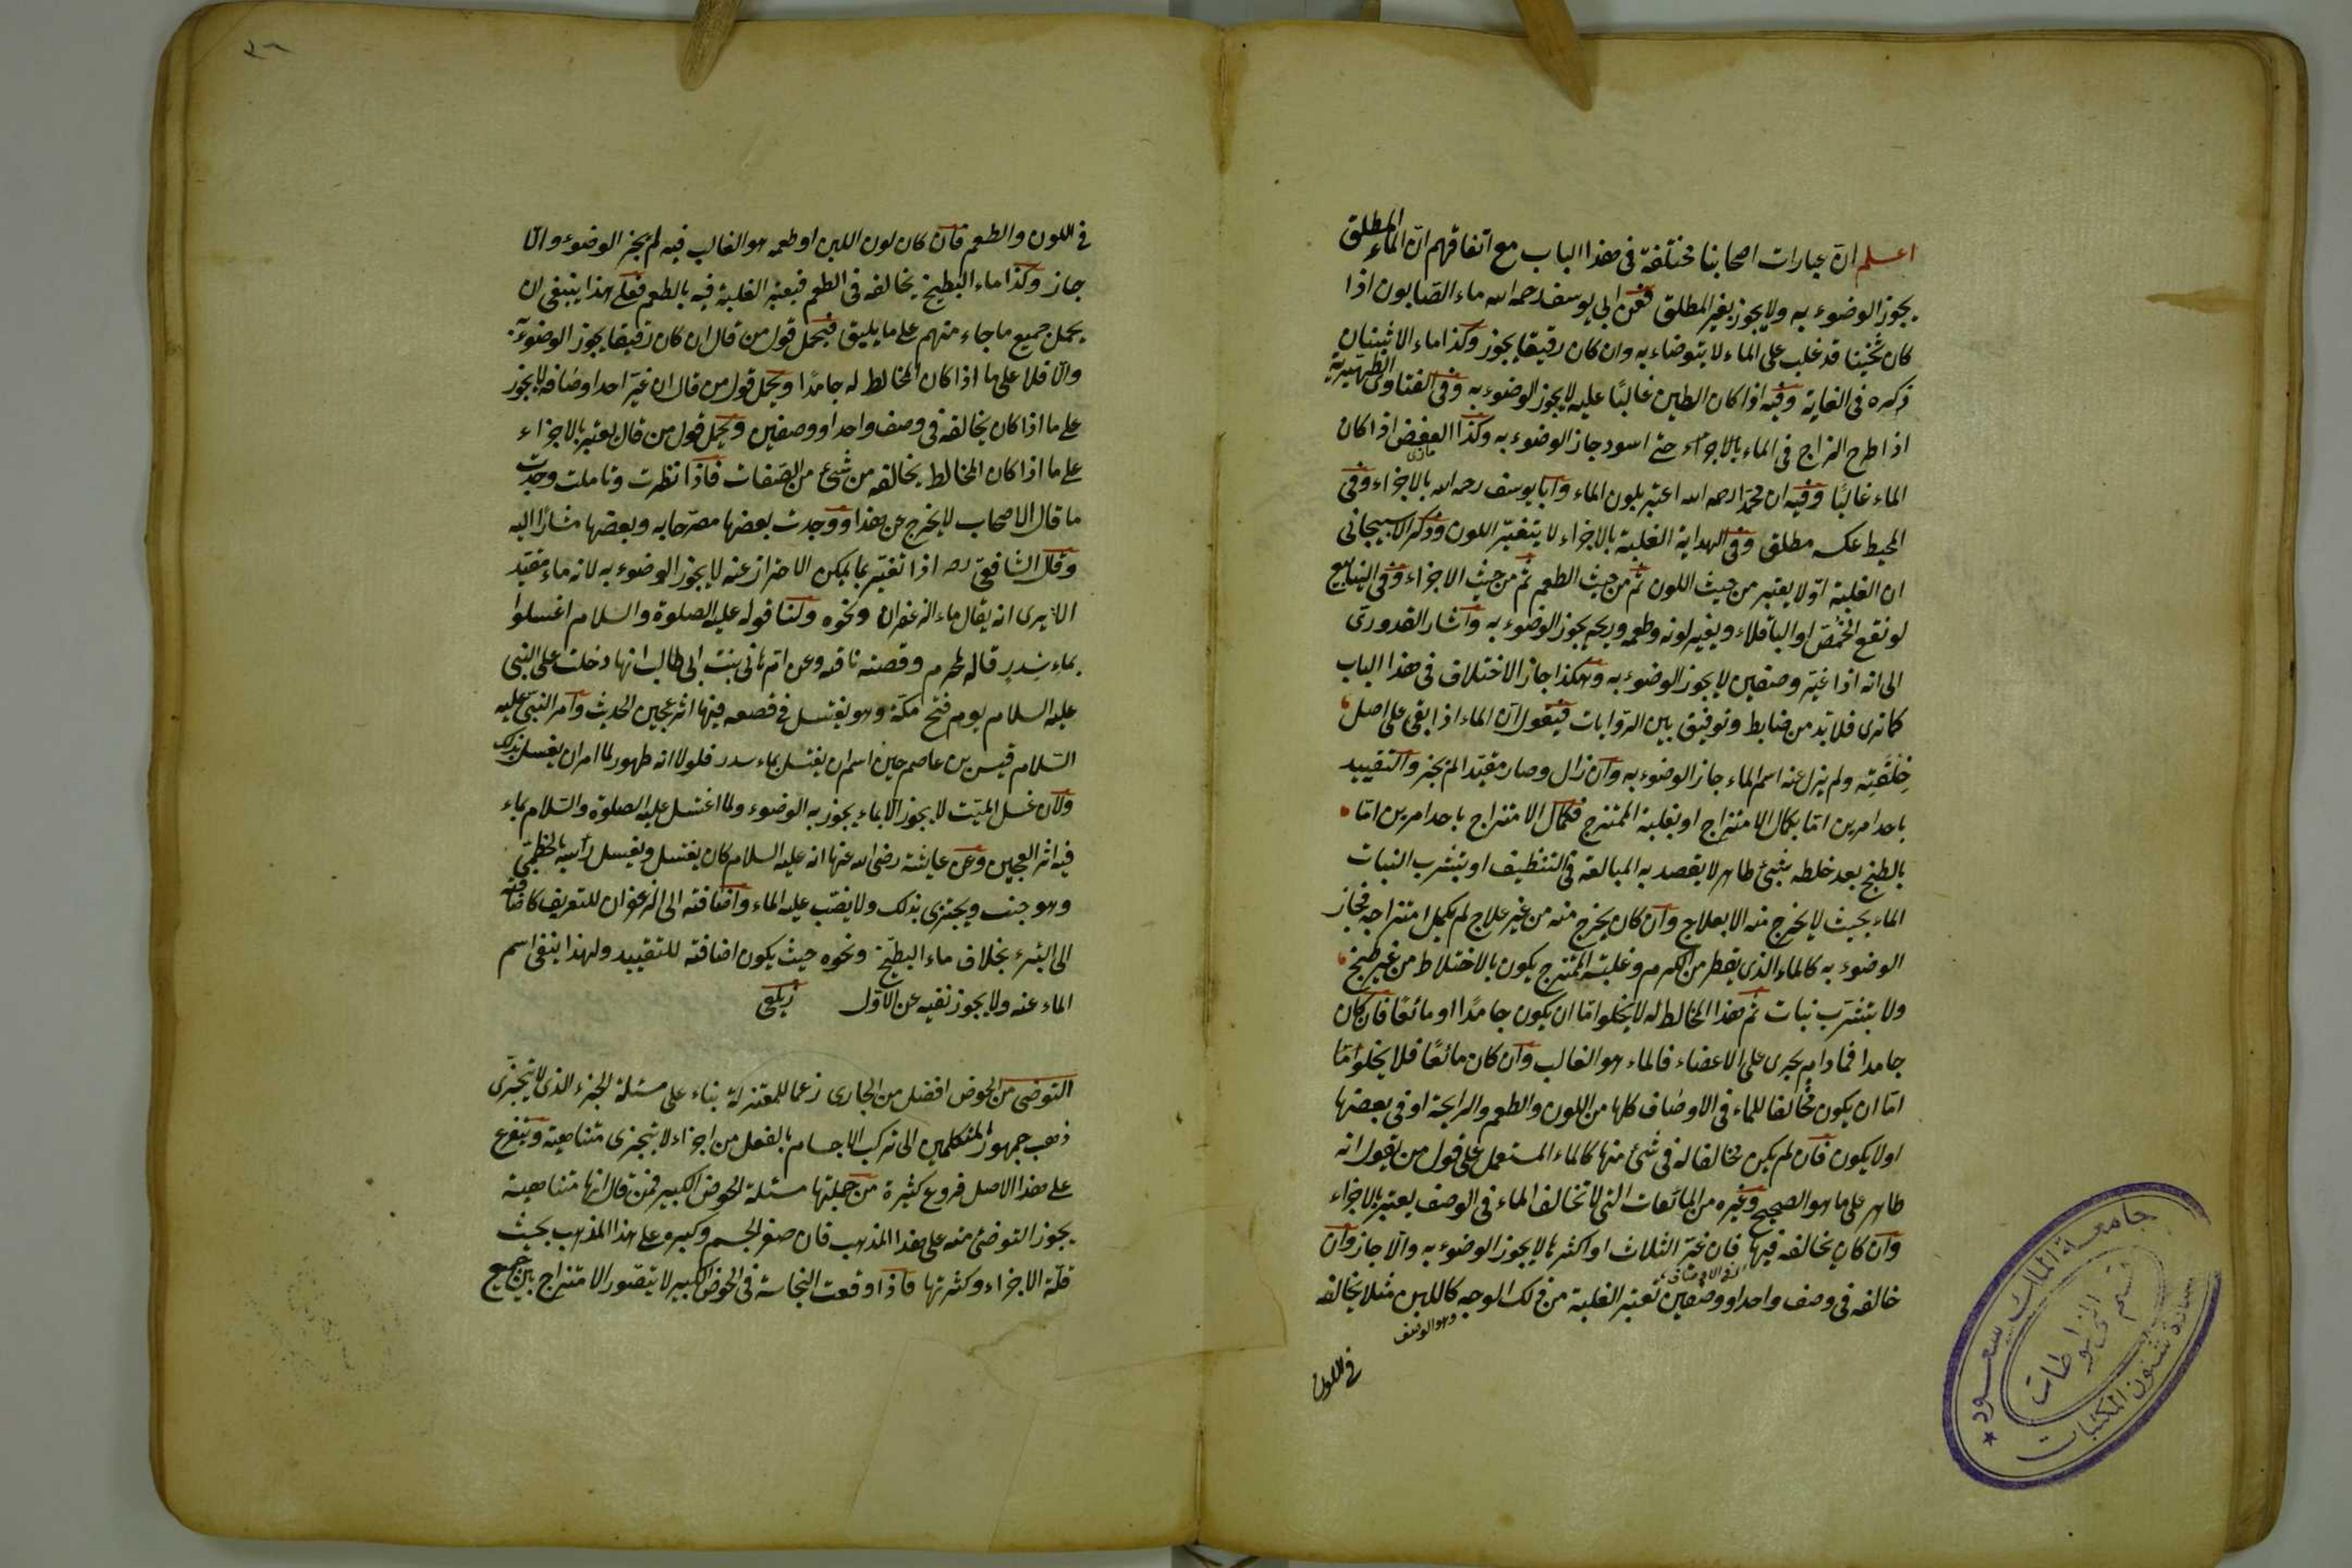 اعلم ان عبارات اصحابنا مختلفة فى هذا الباب مع اتفاقهم ان الماء المطلق
يجوز الوضوء به ولا يجوز بغير المطلق فعن ابى يوسف رحمه الله ماء الصابون اذا
كان ثخينا قد غلب على الماء لا يتوضاء به وان كان رقيقا يجوز وكذا ماء الاشنان
ذكره فى الغاية وفيه اذا كان الطين غالبًا عليه لا يجوز الوضوء به وفى الفتاوى الظهيرية
اذا طرح الزاج فى الماء حتى اسود جاز الوضوء به وكذا العفص اذا كان
الماء غالبًا وفيه ان محمدا رحمه الله اعتبر بلون الماء وابا يوسف رحمه الله بالاجزاء وفى
المحيط عكسه مطلق وفى الهداية الغلبة بالاجزاء لا بتغيّر اللون وذكر الاسبيجابى
ان الغلبة اوّلا يعتبر من حيث اللون ثم من حيث الطعم ثم من حيث الاجزاء وفى الينابيع
لو نقع الحمّص او الباقلاء ويغير لونه وطعمه وريحه يجوز الوضوء به واشار القدورى
الى انه اذا غيّر وصفين لا يجوز الوضوء به وهكذا جاز الاختلاف فى هذا الباب
كما ترى فلا بد من ضابط وتوفيق بين الروايات فيقول ان الماء اذا بقى على اصل
خلقته ولم يزل عنه اسم الماء جاز الوضوء به وان زال وصار مقيّدا لم يجز والتقييد
باحد امرين امّا بكمال الامتزاج او بغلبة الممتزج فكمال الامتزاج باحد امرين امّا
بالطبخ بعد خلطه بشئ طاهر لا يقصد به المبالغة فى التنظيف او بتشرب النبات
الماء بحيث لا يخرج منه الا بعلاج وان كان يخرج منه من غير علاج لم يكمل امتزاجه فجاز
الوضوء به كالماء الذى يقطر من الكرم وغلبة الممتزج يكون بالاختلاط من غير طبخ
ولا بتشرّب نبات ثم هذا المخالط له لا يخلوا امّا ان يكون جامدًا او مائعًا فان كان
جامدا فما دام يجرى على الاعضاء فالماء هو الغالب وان كان مائعًا فلا يخلوا امّا
امّا ان يكون مخالفا للماء فى الاوصاف كلها من اللون والطعم والرايحة او فى بعضها
اولا يكون فان لم يكن مخالفا له فى شئ منها كالماء المستعمل على قول من يقول انه
طاهر على ما هو الصحيح وغيره من المائعات التى لا تخالف الماء فى الوصف يعتبر بالاجزاء
وان كان يخالفه فيها فان غيّر الثلاث او اكثرها لا يجوز الوضوء به والّا جاز وان
خالفه فى وصف واحد او وصفين تعتبر الغلبة من ذلك الوجه كاللبن مثلا يخالفه
وهو الوصف
فى اللون
جامعة الملك سعود
قسم المخطوطات
عمادة شئون المكتبات
٣٦
فى اللون والطعم فان كان لون اللبن او طعمه هو الغالب فيه لم يجز الوضوء والّا
جاز وكذا ماء البطيخ يخالفه فى الطعم فيعتبر الغلبة فيه بالطعم فعلى هذا ينبغى ان
يحمل جميع ما جاء منهم على ما يليق فيحمل قول من قال ان كان رقيقا يجوز الوضوء
والّا فلا على ما اذا كان المخالط له جامدًا ويحمل قول من قال ان غيّر احد اوصافه لا يجوز
على ما اذا كان يخالفه فى وصف واحد او وصفين ويحمل قول من قال يعتبر بالاجزاء
على ما اذا كان المخالط يخالفه من شئ من الصفات فاذا نظرت وتاملت وجدت
ما قال الاصحاب لا يخرج عن هذا ووجدت بعضها مصرّحا به وبعضها مشارًا اليه
وقال الشافعى رحه اذا تغيّر بما يمكن الاحتراز عنه لا يجوز الوضوء به لانه ماء مقيّد
الا يرى انه يقال ماء الزعفران ونحوه ولنا قوله عليه الصلوة والسلام اغسلوا
بماء سدر قاله لمحرم وقصته ناقته وعن ام هانى بنت ابى طالب انها دخلت على النبى
عليه السلام يوم فتح مكة وهو يغتسل فى قصعه فيها اثر عجين الحديث وامر النبى عليه
السّلام قيس بن عاصم حين اسلم ان يغتسل بماء سدر فلولا انه طهور لما امر ان يغتسل بذلك
ولان غسل الميّت لا يجوز الا بماء يجوز به الوضوء ولما اغتسل عليه الصلوة والسّلام بماء
فيه اثر العجين وعن عايشة رضى الله عنها انه عليه السلام كان يغتسل ويغسل رأسه بالخطمى
وهو جنب ويجتزى بذلك ولا يصّب عليه الماء واضافته الى الزعفران للتعريف كاضافته
الى البئر بخلاف ماء البطّيخ ونحوه حيث يكون اضافته للتقييد ولهذا ينفى اسم
الماء عنه ولا يجوز نفيه عن الاوّل زيلعى
التوضى من الحوض افضل من الجارى زعما للمعتزلة بناء على مسئلة الجزء الذى لا يتجزى
ذهب جمهور المتكلمين الى تركب الاجسام بالفعل من اجزاء لا يتجزى متناهية ويتفرع
على هذا الاصل فروع كثيرة من جملتها مسئلة الحوض الكبير فمن قال انها متناهية
يجوز التوضئ منه على هذا المذهب فان صغر الجسم وكبره على هذا المذهب بحيث
قلّة الاجزاء وكثرتها فاذا وقعت النجاسة فى الحوض الكبير لا يتصور الامتزاج بين جميع